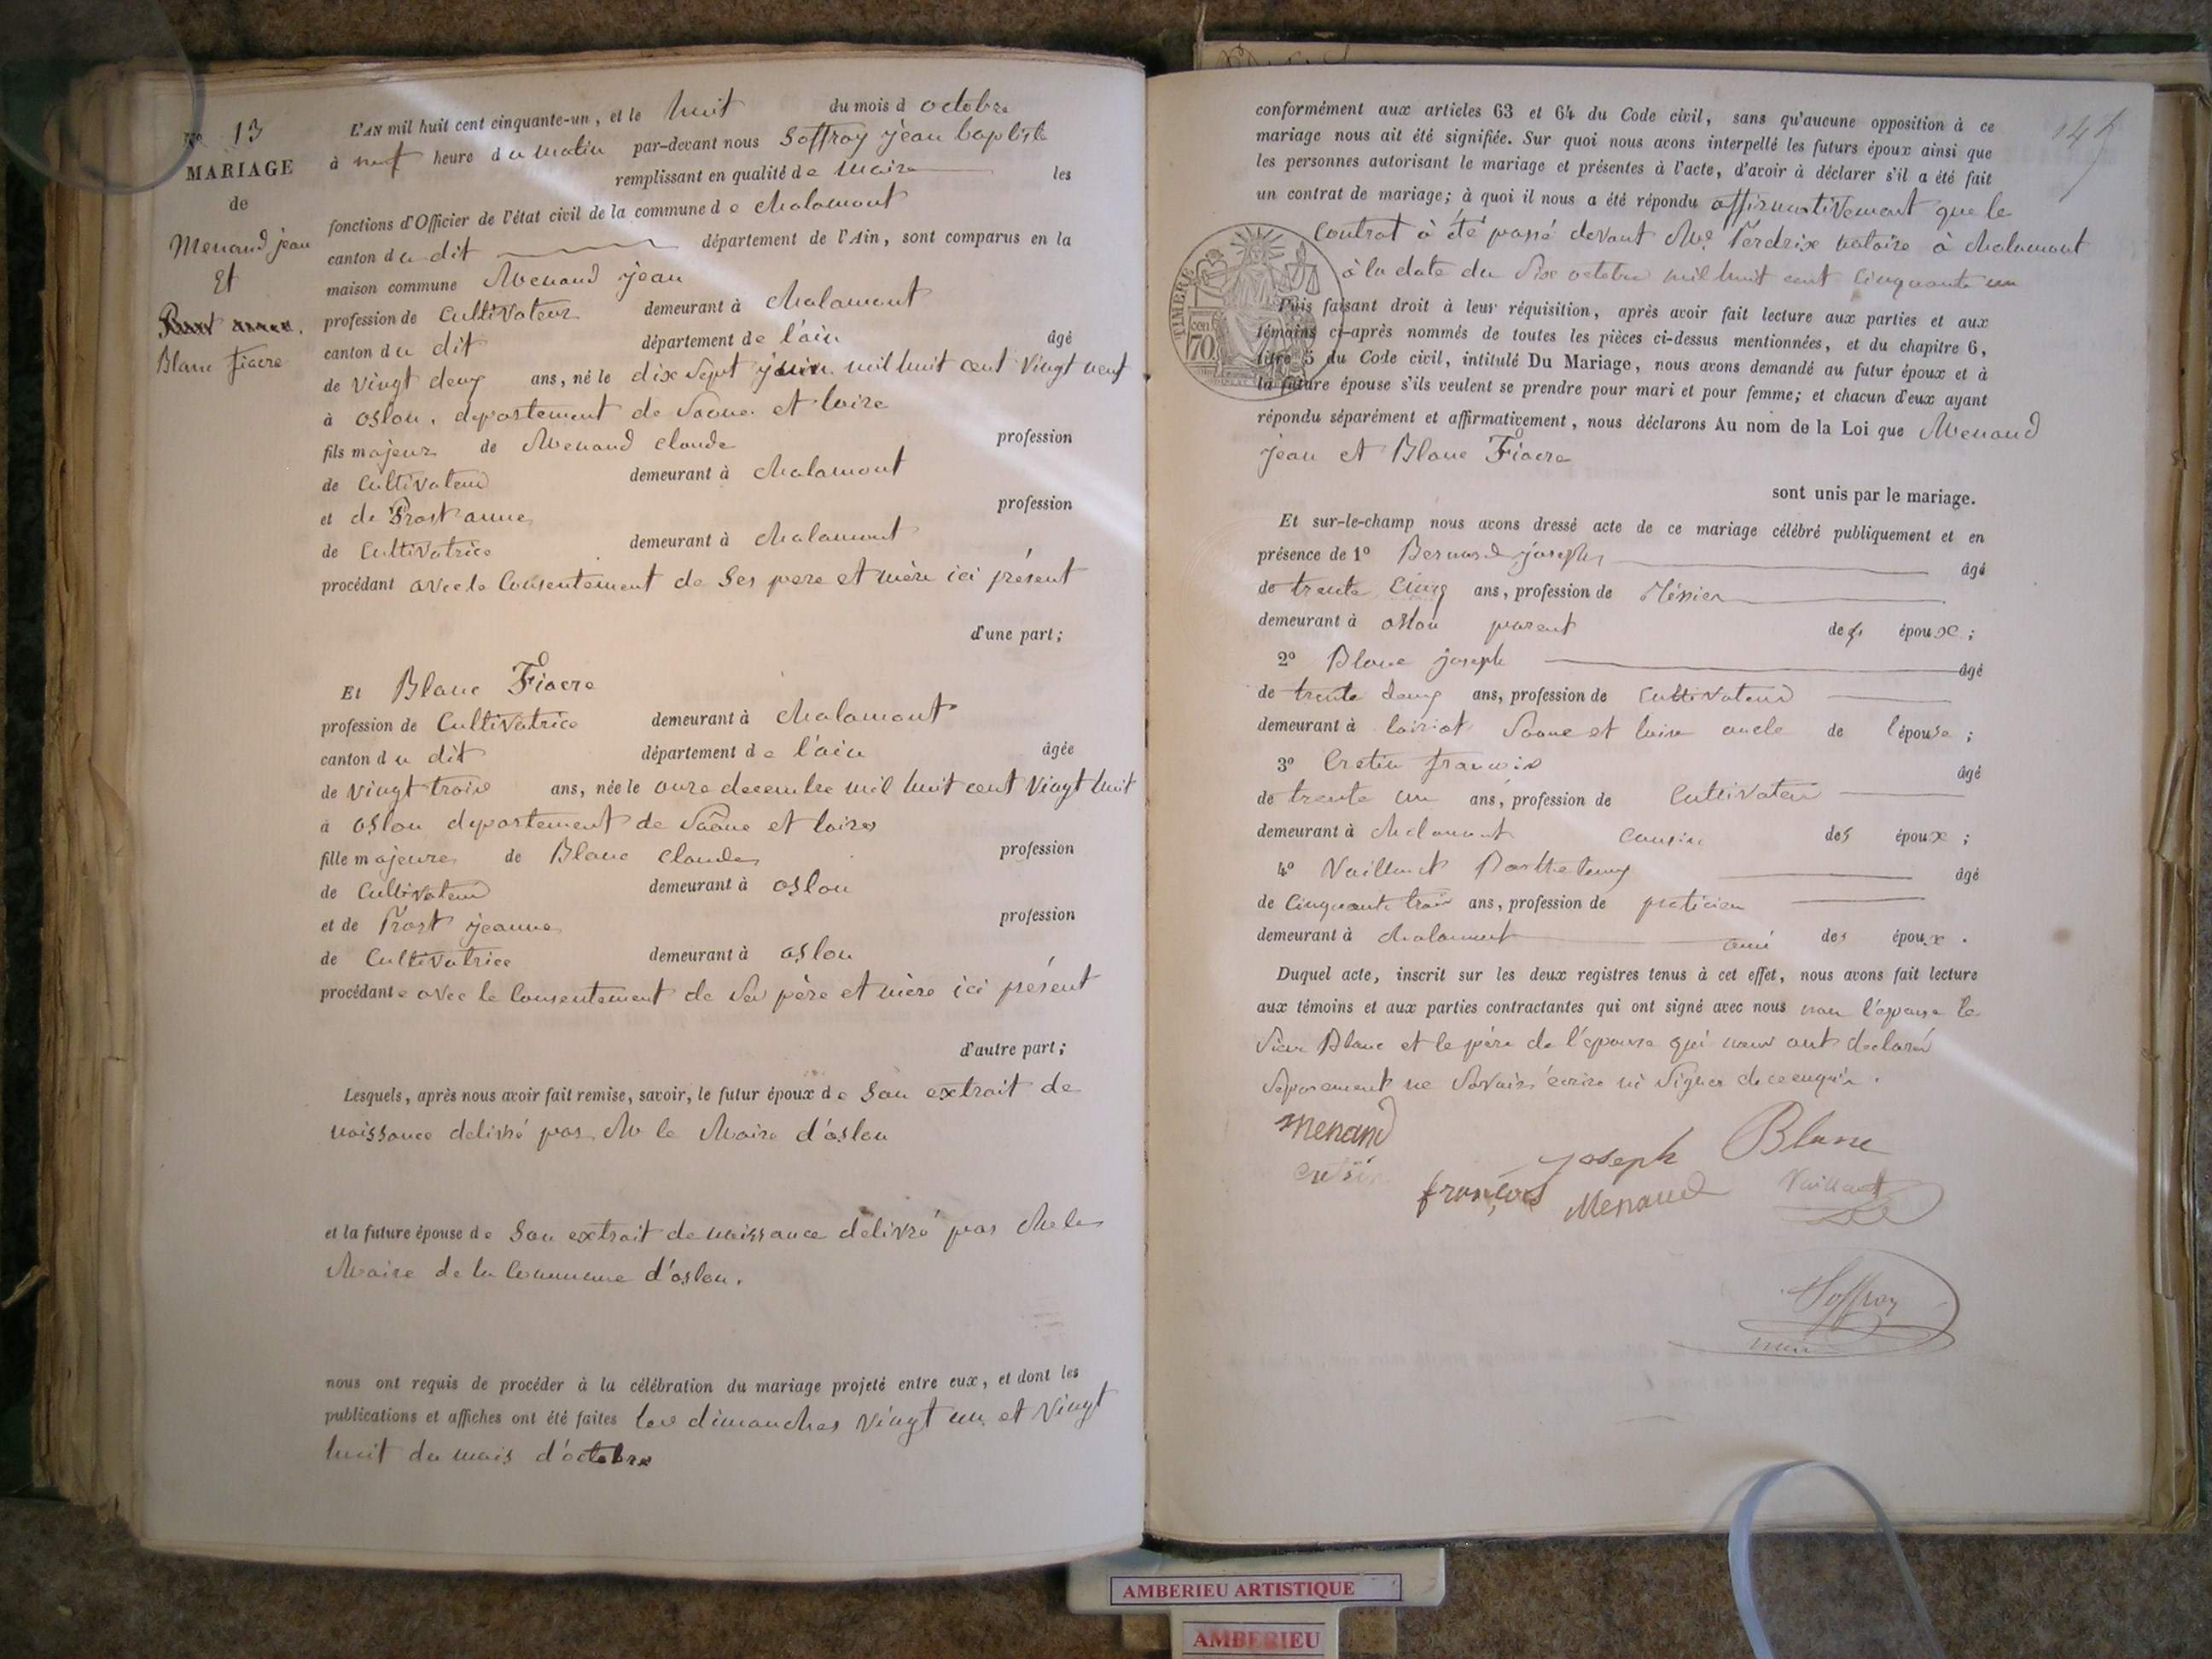 No 13
MARIAGE
de
Menand jean
Et
Blanc fiacre
L'AN mil huit cent cinquante-un, et le huit du mois d octobre
à neuf heure du matin par-devant nous Soffray jean baptiste
remplissant en qualité de Maire les
fonctions d'Officier de l'état civil de la commune de chalamont
canton du dit département de l'Ain, sont comparus en la
maison commune Menand jean
profession de Cultivateur demeurant à chalamont
canton du dit département de l'ain âgé
de vingt deux ans, né le dix sept juin mil huit cent vingt neuf
à oslon, departement de Saone et loire
fils majeur de Menand claude profession
de cultivateur demeurant à chalamont
et de Prost anne profession
de Cultivatrice demeurant à chalamont
procédant avec le Consentement de ses père et mère ici présent
d'une part;
Et Blanc Fiacre
profession de Cultivatrice demeurant à chalamont
canton du dit département de l'ain âgée
de vingt trois ans, née le onze decembre mil huit cent vingt huit
à oslon departement de Saône et loire
fille majeure de Blanc claude profession
de Cultivateur demeurant à oslon
et de Prost jeanne profession
de Cultivatrice demeurant à oslon
procédante avec le Consentement de ses père et mère ici présent
d'autre part;
Lesquels, après nous avoir fait remise, savoir, le futur époux de son extrait de
naissance delivré par M le Maire d'oslon
et la future épouse de son extrait de naissance délivré par M le
Maire de la Commune d'oslon.
nous ont requis de procéder à la célébration du mariage projeté entre eux, et dont les
publications et affiches ont été faites les dimanches vingt un et vingt
huit du mois d'octobre
conformément aux articles 63 et 64 du Code civil, sans qu'aucune opposition à ce
mariage nous ait été signifiée. Sur quoi nous avons interpellé les futurs époux ainsi que
les personnes autorisant le mariage et présentes à l'acte, d'avoir à déclarer s'il a été fait
un contrat de mariage; à quoi il nous a été répondu affirmativement que le
Contrat à été passé devant Me Perdrix notaire à chalamont
à la date du Six octobre mil huit cent cinquante un
TIMBRE
cen
70
Puis faisant droit à leur réquisition, après avoir fait lecture aux parties et aux
témoins ci-après nommés de toutes les pièces ci-dessus mentionnées, et du chapitre 6,
titre 5 du Code civil, intitulé Du Mariage, nous avons demandé au futur époux et à
la future épouse s'ils veulent se prendre pour mari et pour femme; et chacun d'eux ayant
répondu séparément et affirmativement, nous déclarons Au nom de la Loi que Menand
jean et Blanc Fiacre
sont unis par le mariage.
Et sur-le-champ nous avons dressé acte de ce mariage célébré publiquement et en
présence de 1o Bernard joseph âgé
de trente cinq ans, profession de
demeurant à oslon parent des époux;
2o Blanc joseph âgé
de trente deux ans, profession de cultivateur
demeurant à Saone et loire oncle de l'épouse;
3o Cretin francois âgé
de trente un ans, profession de Cultivateur
demeurant à chalamont cousin des époux;
4o Vaillant Barthelemy âgé
de Cinquante trois ans, profession de praticien
demeurant à chalamont ami des époux.
Duquel acte, inscrit sur les deux registres tenus à cet effet, nous avons fait lecture
aux témoins et aux parties contractantes qui ont signé avec nous non l'épouse le
Sieur Blanc et le père de l'épouse qui nous ont déclaré
separement ne savoir écrire ni signer de ce enquis.
Menand
joseph Blanc
françois Menand Vaillant
Soffray
AMBERIEU ARTISTIQUE
AMBERIEU